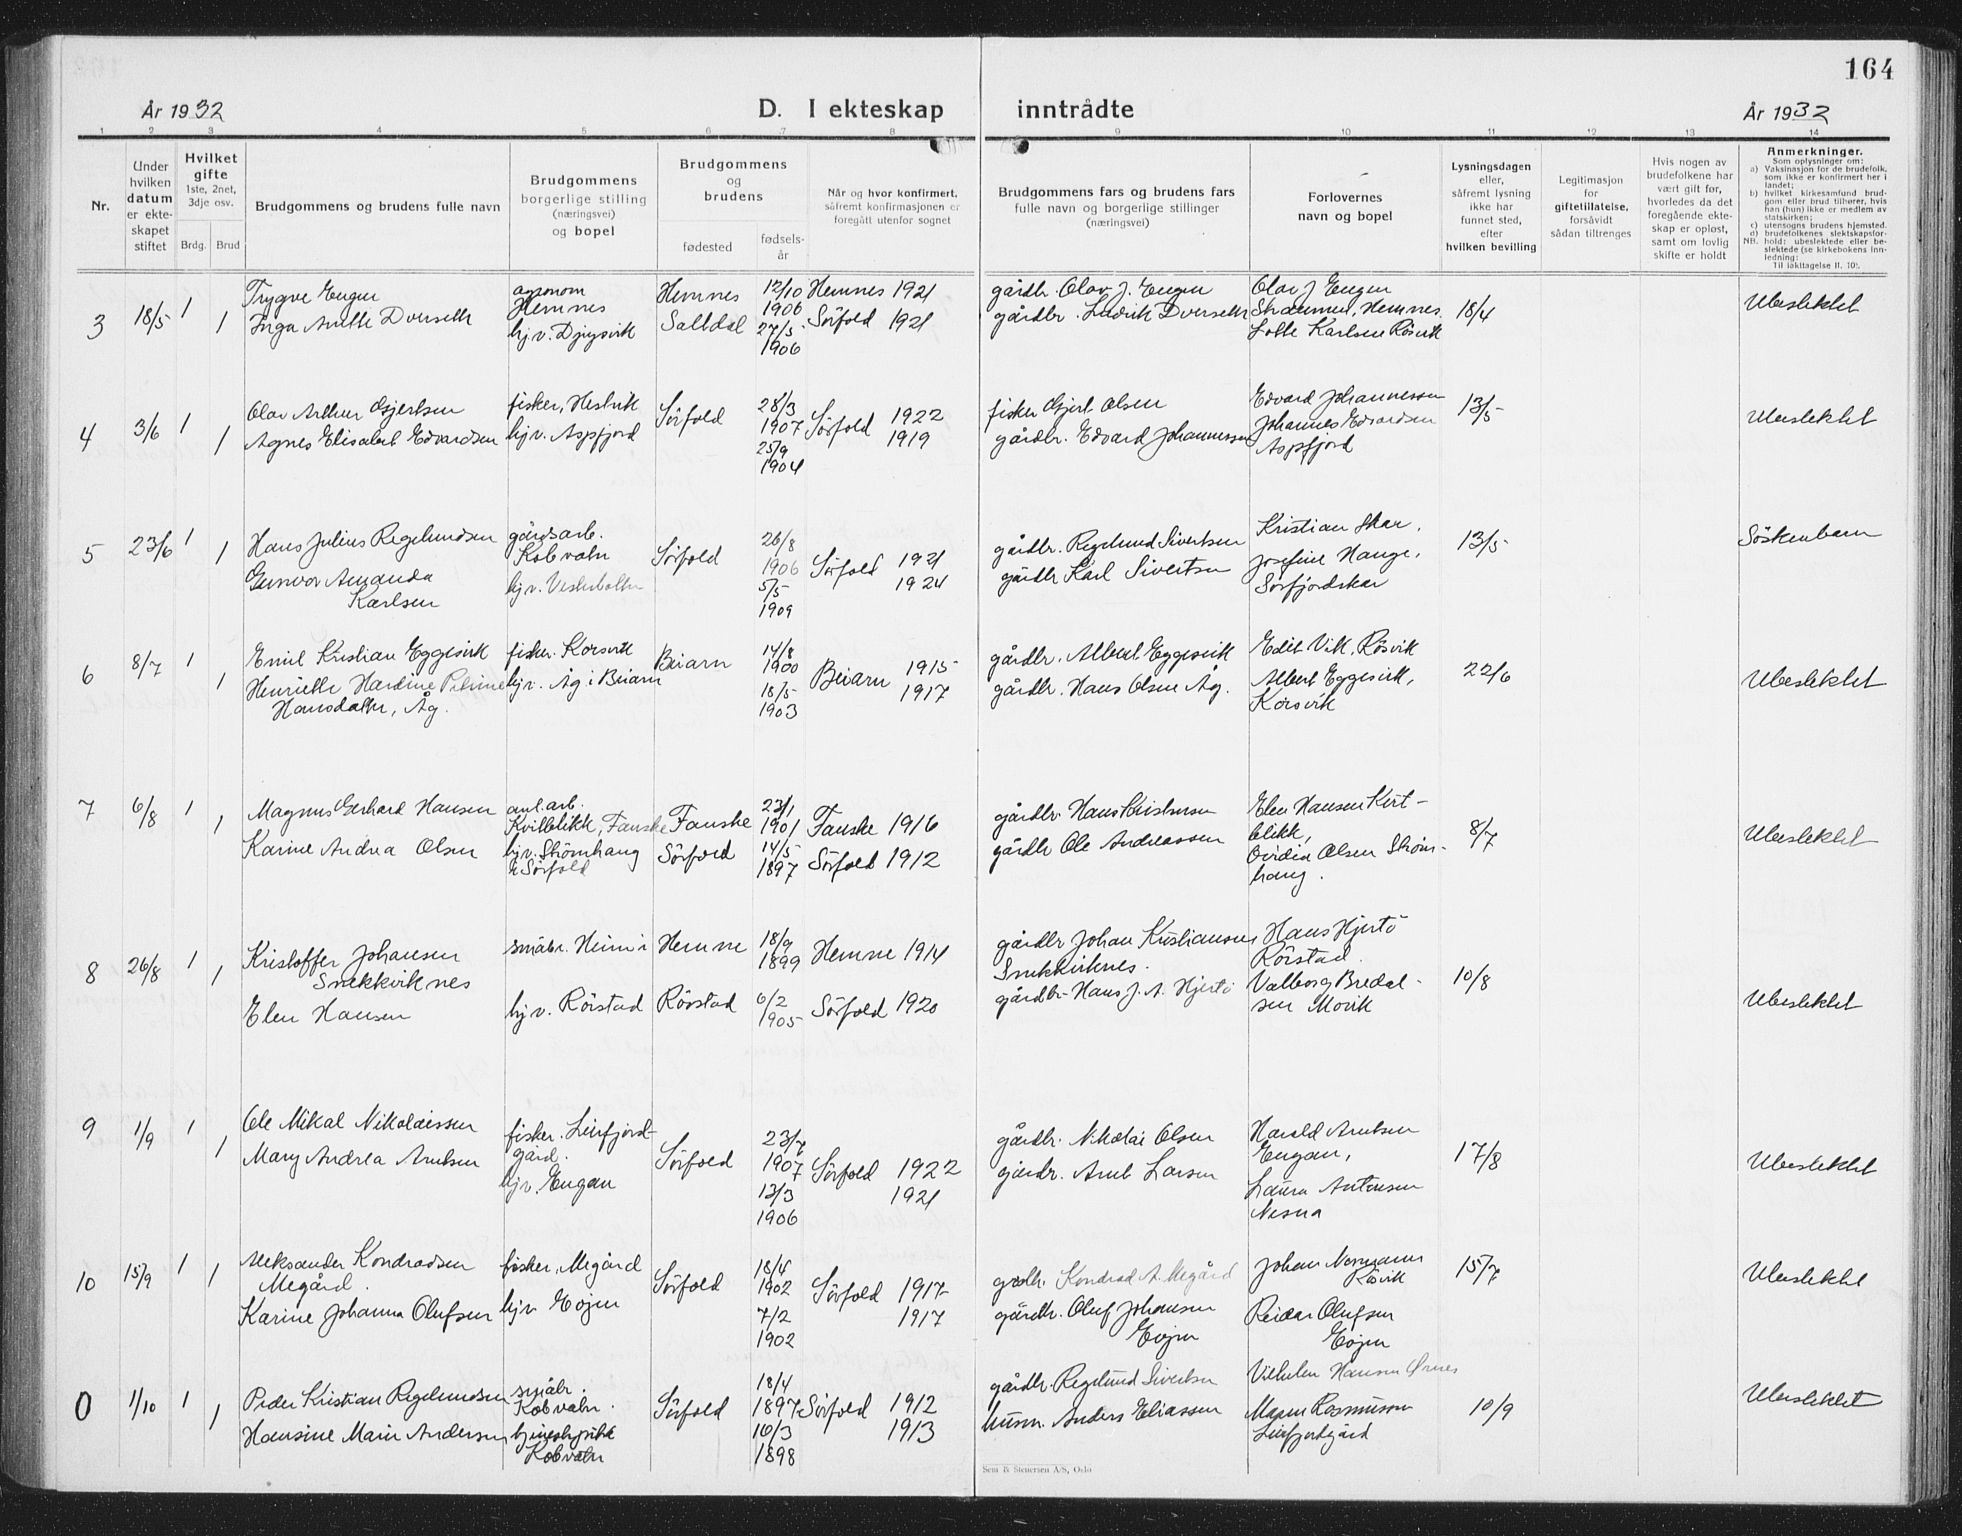 164
År 1932
D. I ekteskap inntrådte
År 1932
1 2 3 4 5 6 7 8 9 10 11 12 13 14
Nr.
Under
hvilken
datum
er ekte-
skapet
stiftet
Hvilket
gifte
1ste, 2net,
3dje osv.
Brdg.
Brud
Brudgommens og brudens fulle navn
Brudgommens
borgerlige stilling
(næringsvei)
og bopel
Brudgommens
og
brudens
fødested
fødsels-
år
Når og hvor konfirmert,
såfremt konfirmasjonen er
foregått utenfor sognet
Brudgommens fars og brudens fars
fulle navn og borgerlige stillinger
(næringsvei)
Forlovernes
navn og bopel
Lysningsdagen
eller,
såfremt lysning
ikke har
funnet sted,
efter
hvilken bevilling
Legitimasjon
for
giftetillatelse,
forsåvidt
sådan tiltrenges
Hvis nogen av
brudefolkene har
vært gift før,
hvorledes da det
foregående ekte-
skap er opløst,
samt om lovlig
skifte er holdt
Anmerkninger.
Som oplysninger om:
a) Vaksinasjon for de brudefolk,
som ikke er konfirmert her i
landet;
b) hvilket kirkesamfund brud-
gom eller brud tilhører, hvis
han (hun) ikke er medlem av
statskirken;
c) utensogns brudens hjemsted.
d) brudefolkenes slektskapsfor-
NB. hold: ubeslektede eller be-
slektede (se kirkebokens inn-
ledning:
Til iakttagelse II. 10).
3 18/5 1 1
Trygve Engen
Inga Anette Dverseth
agronom
Hemnes
hjv. Djupvik
Hemnes
Saltdal
12/10
1906
27/5
1906
Hemnes 1921
Sörfold 1921
gårdbr. Olav J. Engen
gårdbr. Ludvik Dverseth
Olav J Engen
Hemnes.
Lotte Karlsen Rösvik
18/4
Ubeslektet
4 3/6 1 1
Olav Arthur Gjertsen
Agnes Elisabet Edvardsen
fisker, Hestvik
hjv. Aspfjord
Sörfold
28/3
1907
25/9
1904
Sörfold 1922
1919
fisker Gjert Olsen
gårdbr. Edvard Johannessen
Edvard Johannessen
Johannes Edvardsen
Aspfjord
13/5
Ubeslektet
5 23/6 1 1
Hans Julius Regelundsen
Gunvor Amanda
Karlsen
gårdsarb.
Kobvatn
hjv. Vesterbotn
Sörfold
26/8
1906
5/5
1909
Sörfold 1921
1924
gårdbr. Regelund Sivertsen
gårdbr Karl Sivertsen
Kristian Skar,
Josefine Hauge,
Sörfjordskar
13/5
Söskenbarn
6 8/7 1 1
Emil Kristian Eggesvik
Henriette Hardine Petrine
Hansdatter, Åg.
fisker. Korsvik
hjv. Åg i Beiarn
Beiarn
14/8
1900
18/5
1903
Beiarn 1915
1917
gårdbr. Albert Eggesvik
gårdbr. Hans Olsen Åg.
Edit Vik, Rösvik
Albert Eggesvik,
Korsvik
22/6
Ubeslektet
7 6/8 1 1
Magnus Gerhard Hansen
Karine Andrea Olsen
anl.arb.
Kvitblikk, Fauske
hjv. Strömhaug
i Sörfold
Fauske
Sörfold
23/1
1901
14/5
1897
Fauske 1916
Sörfold 1912
gårdbr. Hans Kristensen
gårdbr Ole Andreassen
Elen Hansen Kvit-
blikk,
Ovidia Olsen Ström-
haug.
8/7
Ubeslektet
8 26/8 1 1
Kristoffer Johansen
Snekkviknes
Elen Hansen
småbr. Heim i
hjv. Rörstad
Hemne
Rörstad
18/9
1899
6/2
1905
Hemne 1914
Sörfold 1920
gårdbr Johan Kristiansen
Snekkviknes.
gårdbr. Hans J. A. Hjertö
Hans Hjertö
Rörstad.
Valborg Bredal-
sen Movik
10/8
Ubeslektet
9 1/9 1 1
Ole Mikal Nikolaissen
Mary Andrea Arntsen
fisker. Leirfjord-
gård.
hjv. Engan
Sörfold
23/7
1907
13/3
1906
Sörfold 1922
1921
gårdbr. Nikolai Olsen
gårdbr. Arnt Larsen
Harald Arntsen
Engan,
Laura Antonsen
Nesna
17/8
Ubeslektet
10 15/9 1 1
Aleksander Kondradsen
Megård.
Karine Johanna Olufsen
fisker, Megård
hjv Evjen
Sörfold
18/4
1902
7/2
1902
Sörfold 1917
1917
grdbr. Kondrad A. Megård
gårdbr. Oluf Johansen
Evjen
Johan Normann
Rösvik
Reidar Olufsen
Evjen
15/7
Ubeslektet
0 1/10 1 1
Peder Kristian Regelundsen
Hansine Marie Andersen
småbr.
Kobvatn.
Kobvatn
Sörfold
18/4
1897
10/3
1898
Sörfold 1912
1913
gårdbr. Regelund Sivertsen
husm. Anders Eliassen
Vilhelm Hansen Ørnes
Magna Rasmussen
Leirfjordgård
10/9
Ubeslektet
Sem & Stenersen A/S, Oslo